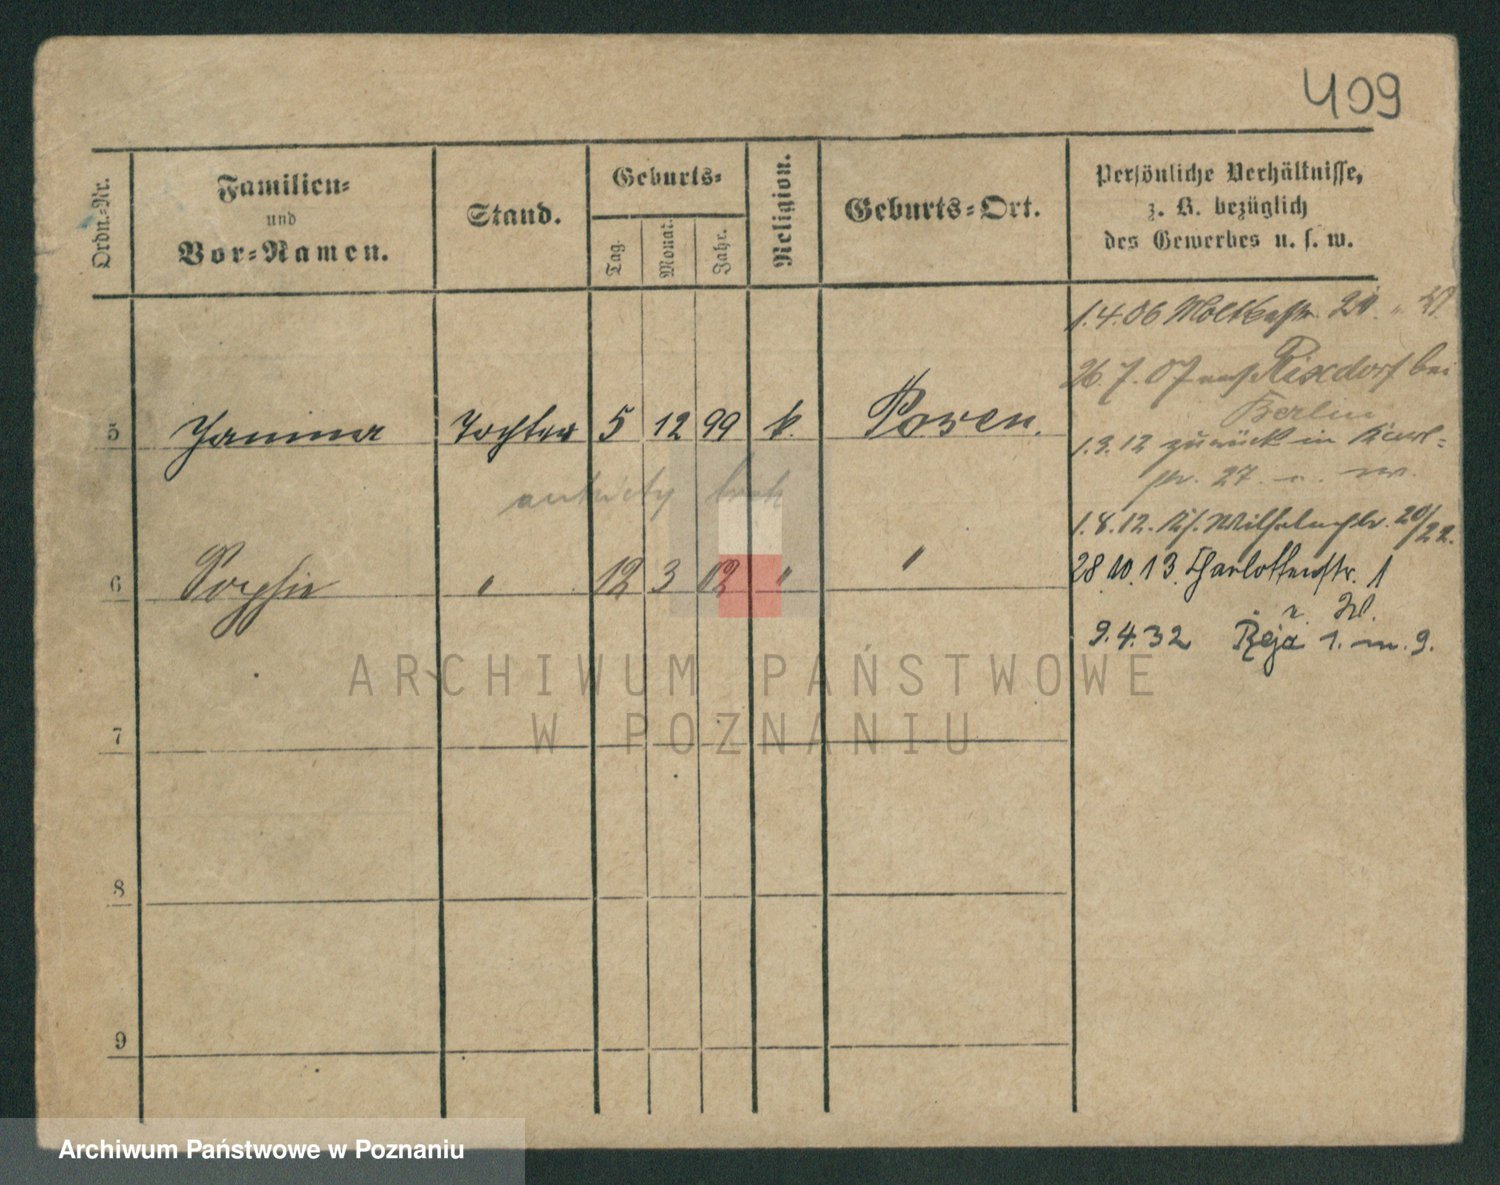 409
Ordn.-Nr.
Familien-
und
Vor-Namen.
Stand.
Geburts-
Tag.
Monat.
Jahr.
Religion.
Geburts-Ort.
Persönliche Verhältnisse,
z. B. bezüglich
des Gewerbes u. s. w.
1.4.06 Moltkestr.
26.7.07 nach Rixdorf bei
Berlin
5 Janina Tochter 5 12 99 k. Posen.
1.3.12 zurück in
27
ankiety brak
1.8.12. Wilhelmstr. 20/22.
6 Sophie " 12 3 02 " "
28.10.13. Charlottenstr. 1
9.4.32 Reja 1. m. 9.
ARCHIWUM PAŃSTWOWE
W POZNANIU
7
8
9
Archiwum Państwowe w Poznaniu